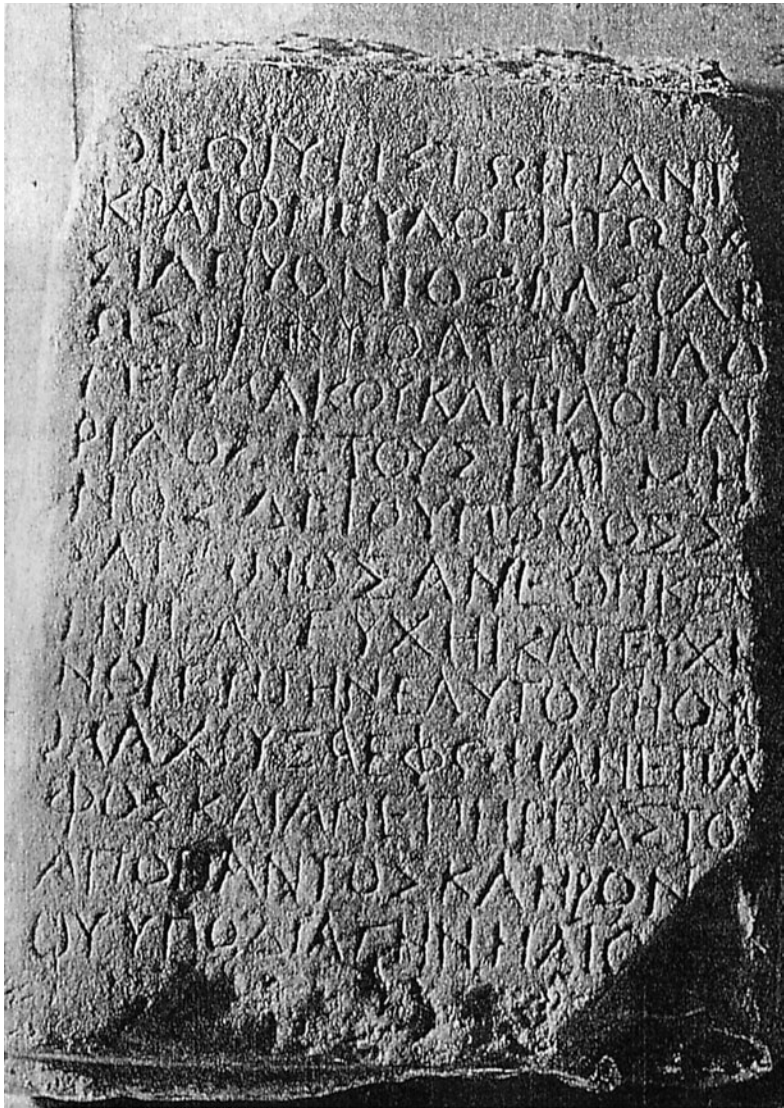 ΘΕΩΙΥΨΙΣΤΩΙΠΑΝΤ
ΚΡΑΤΟΡΙΕΥΛΟΓΗΤΩΒΑ
ΣΙΛΕΥΟΝΤΟΣΒΑΣΙΛΕ
ΩΣ ΦΙΛΟ
ΓΕΡΜΑΝΙΚΟΥΚΑΙΦΙΛΟΠΑΤ
ΡΙΔΟΣ ΕΤΟΥΣ ΗΛΤ ΜΗ
ΝΟΣΔΕΙΟΥΠΟΘΟΣΣ
ΤΡΑΤΩΝΟΣΑΝΕΘΗΚΕΝ
ΕΥΧΗΙΚΑΤΕΥΧΗ
ΝΘΡΕΠΤΗΝΕΑΥΤΟΥΗΟΝ
ΜΑΧΡΥΣΑΕΦΩΗΑΝΕΠΑ
ΦΟΣΚΑΙΑΝΕΠΗΡΕΑΣΤΟ
ΑΠΟΠΑΝΤΟΣΚΛΗΡΟΝ
ΟΥΥΠΟΔΙΑΓΗΝΗΛΙΟ